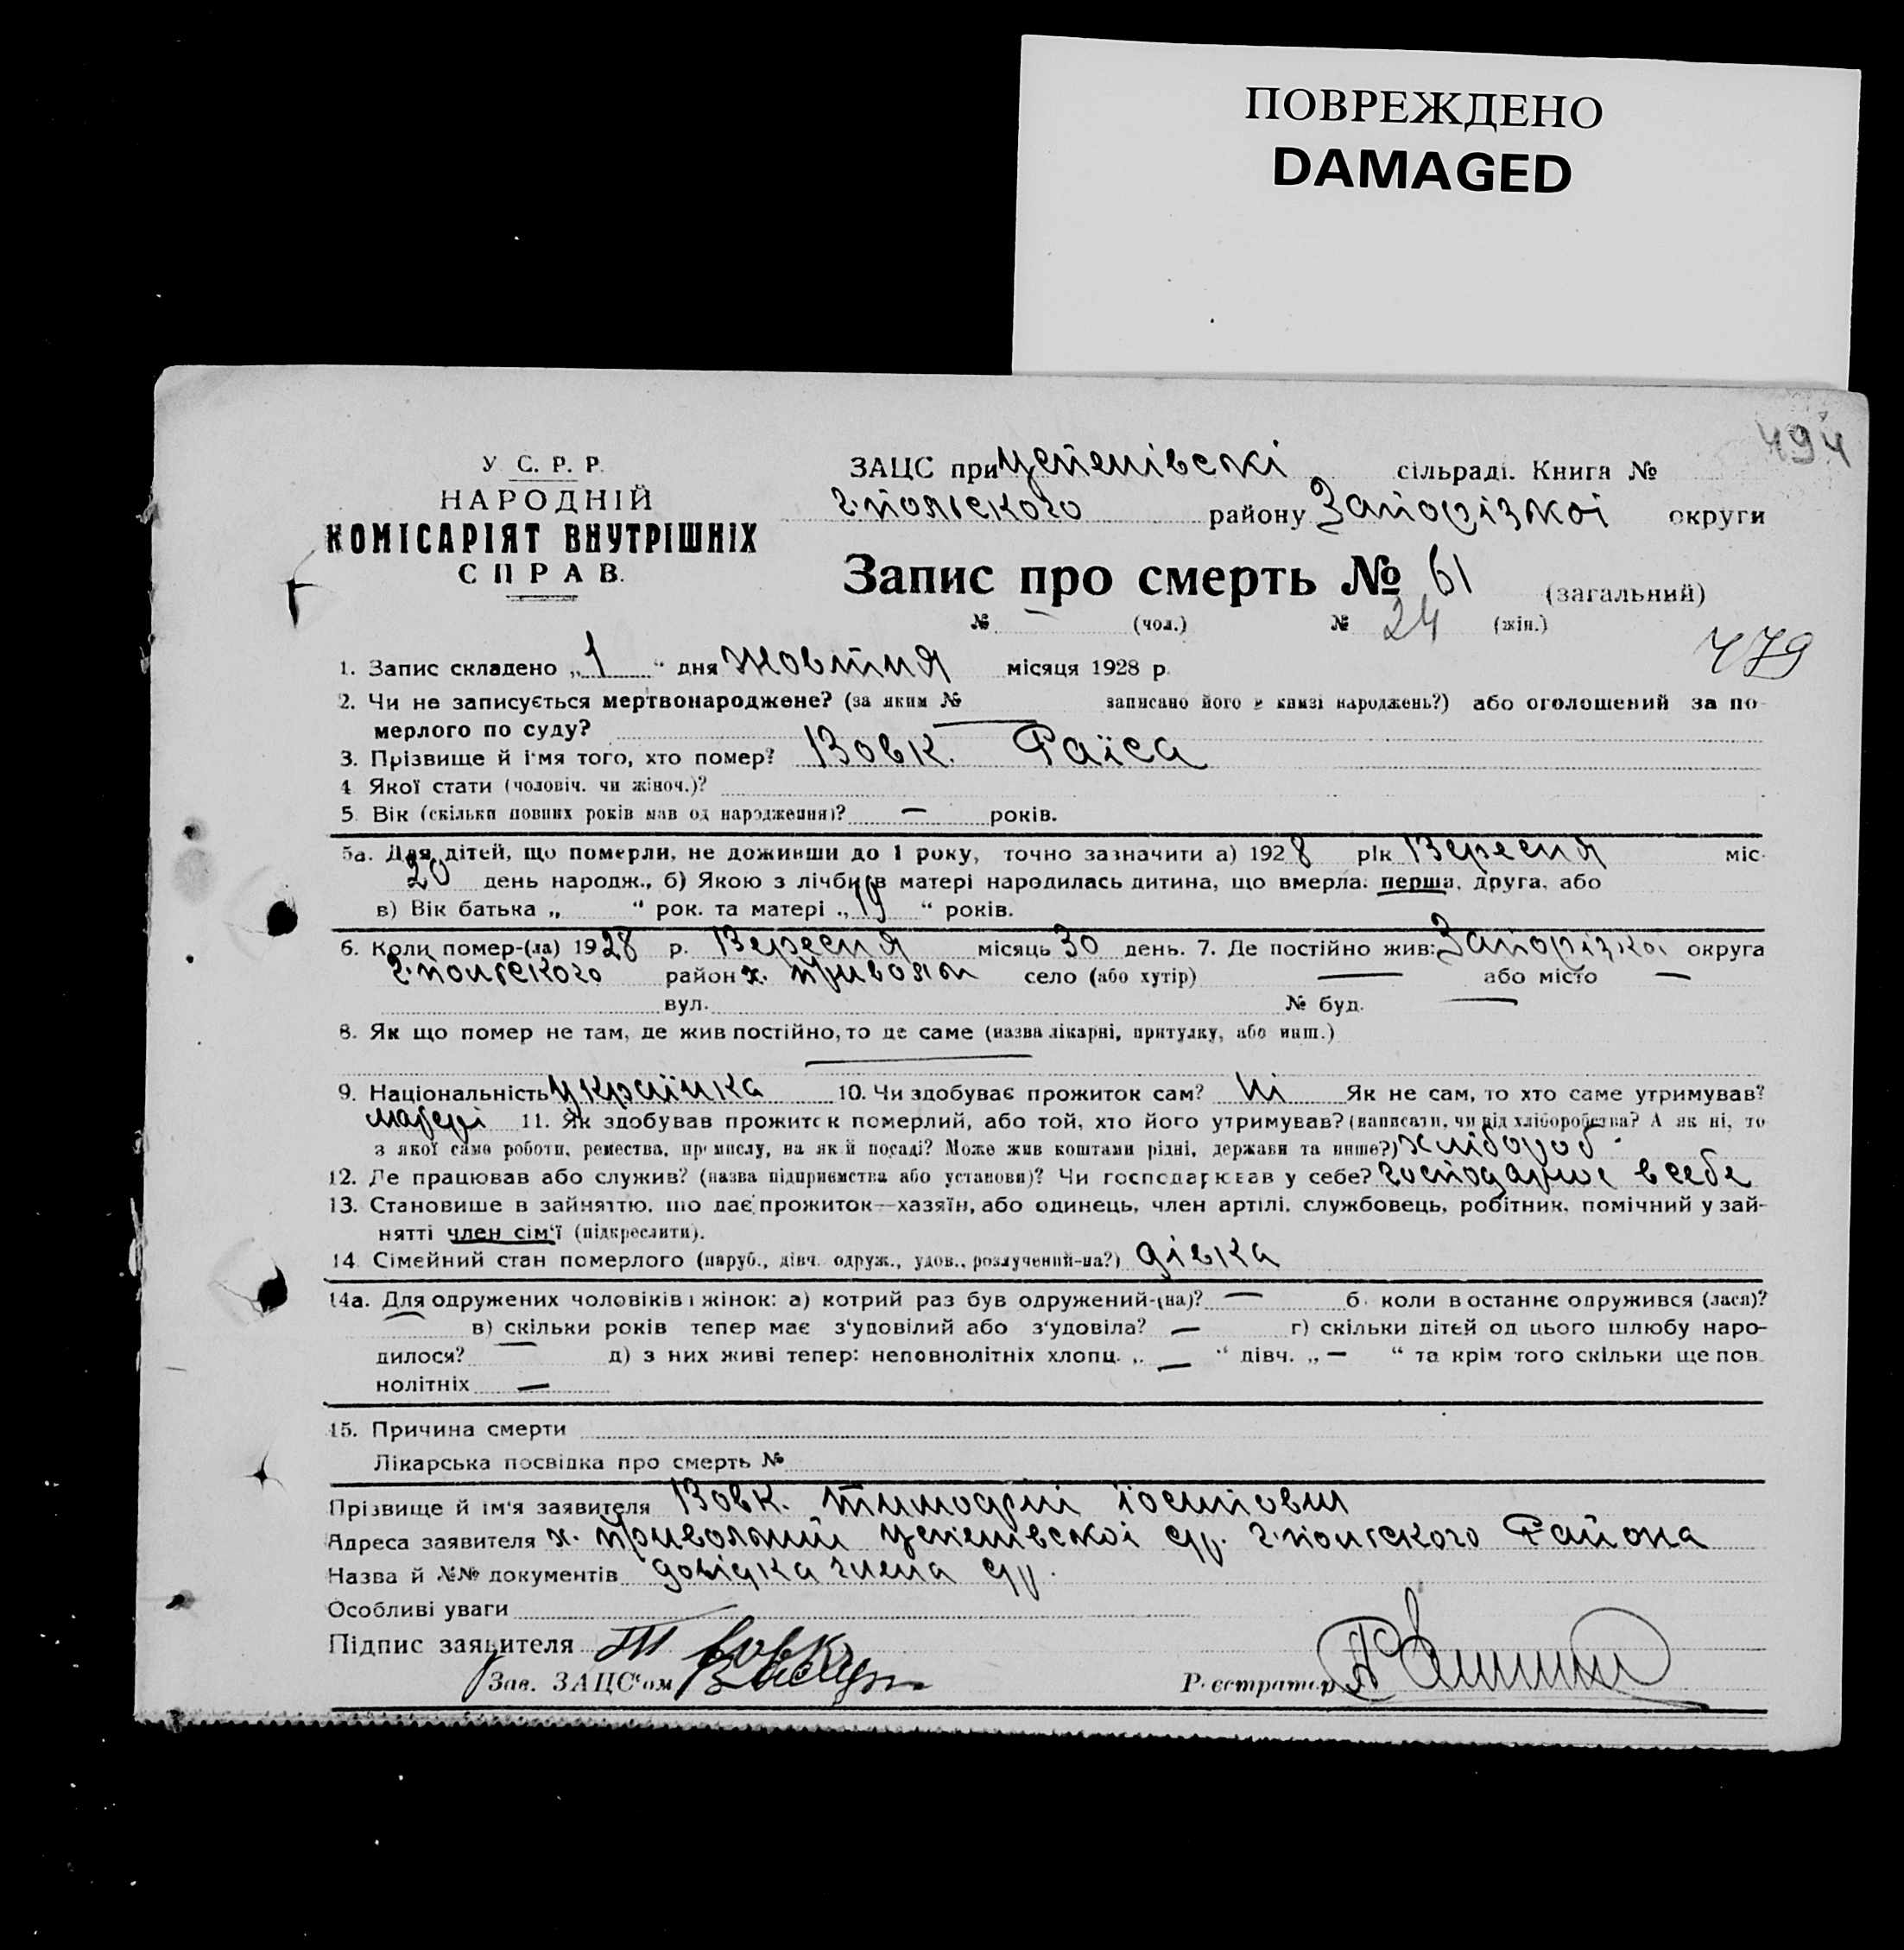 ПОВРЕЖДЕНО
DAMAGED
494
У С. Р. Р.
НАРОДНІЙ
КОМІСАРІЯТ ВНУТРІШНІХ
СПРАВ.
ЗАЦС при Успенівські сільраді. Книга №
г.польського району Запорізької округи
Запис про смерть № 61 (загальний)
№ — (чол.) № 24 (жін.)
479
1. Запис складено „1“ дня жовтня місяця 1928 р.
2. Чи не записується мертвонароджене? (за яким № записано його в книзі народжень?) або оголошений за по-
мерлого по суду? —
3. Прізвище й ім'я того, хто помер? Вовк. Раїса
4 Якої стати (чоловіч. чи жіноч.)?
5. Вік (скільки повних років мав од народження)? — років.
5а. Для дітей, що померли, не доживши до 1 року, точно зазначити а) 1928 рік Вересня міс.
20 день народж., б) Якою з лічби в матері народилась дитина, що вмерла: перша, друга, або
в) Вік батька „ “ рок. та матері „19“ років.
6. Коли помер-(ла) 1928 р. Вересня місяць 30 день. 7. Де постійно жив: Запорізкої округа
г.польского район х. Привольн село (або хутір) — або місто —
вул. № буд. —
8. Як що помер не там, де жив постійно, то де саме (назва лікарні, притулку, або инш.)
—
9. Національність українка 10. Чи здобуває прожиток сам? Ні Як не сам, то хто саме утримував?
матері 11. Як здобував прожиток померлий, або той, хто його утримував? (написати, чи від хліборобства? А як ні, то
з якої саме роботи, ремества, промислу, на якій посаді? Може жив коштами рідні, держави та инше?) хлібороб.
12. Де працював або служив? (назва підприємства або установи)? Чи господарював у себе? господарює в себе
13. Становище в зайняттю, що дає прожиток—хазяїн, або одинець, член артілі, службовець, робітник, помічний у зай-
нятті член сім'ї (підкреслити).
14. Сімейний стан померлого (паруб., дівч. одруж., удов., розлучений-на?) дівка
14а. Для одружених чоловіків і жінок: а) котрий раз був одружений-(на)? — б) коли в останнє одружився (лася)?
— в) скільки років тепер має з'удовілий або з'удовіла? — г) скільки дітей од цього шлюбу наро-
дилося? — д) з них живі тепер: неповнолітніх хлопц. „ — “ дівч. „ — “ та крім того скільки ще пов
нолітніх —
15. Причина смерти
Лікарська посвідка про смерть №
Прізвище й ім'я заявителя Вовк. Тимофій
Адреса заявителя х. Привольний Успенівської с/р. г.польского Района
Назва й №№ документів довідка члена с/р.
Особливі уваги
Підпис заявителя Т Вовк
Зав. ЗАЦС'ом
Реєстратор